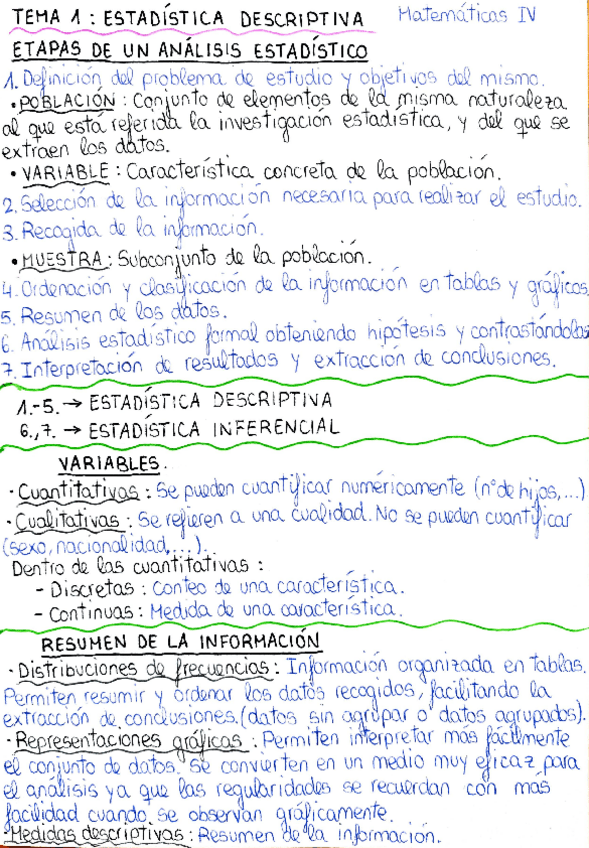 TEMA 1 : ESTADÍSTICA DESCRIPTIVA Matemáticas IV
ETAPAS DE UN ANÁLISIS ESTADÍSTICO
1. Definición del problema de estudio y objetivos del mismo.
• POBLACIÓN : Conjunto de elementos de la misma naturaleza
al que está referida la investigación estadística, y del que se
extraen los datos.
• VARIABLE : Característica concreta de la población.
2. Selección de la información necesaria para realizar el estudio.
3. Recogida de la información.
• MUESTRA : Subconjunto de la población.
4. Ordenación y clasificación de la información en tablas y gráficos.
5. Resumen de los datos.
6. Análisis estadístico formal obteniendo hipótesis y contrastándolas
7. Interpretación de resultados y extracción de conclusiones.
1.-5. → ESTADÍSTICA DESCRIPTIVA
6.,7. → ESTADÍSTICA INFERENCIAL
VARIABLES.
· Cuantitativas : Se pueden cuantificar numéricamente (nº de hijos,...)
· Cualitativas : Se refieren a una cualidad. No se pueden cuantificar
(sexo, nacionalidad,...).
Dentro de las cuantitativas :
- Discretas : Conteo de una característica.
- Continuas : Medida de una característica.
RESUMEN DE LA INFORMACIÓN
· Distribuciones de frecuencias : Información organizada en tablas.
Permiten resumir y ordenar los datos recogidos, facilitando la
extracción de conclusiones. (datos sin agrupar o datos agrupados).
· Representaciones gráficas : Permiten interpretar más fácilmente
el conjunto de datos. Se convierten en un medio muy eficaz para
el análisis ya que las regularidades se recuerdan con más
facilidad cuando se observan gráficamente.
· Medidas descriptivas : Resumen de la información.